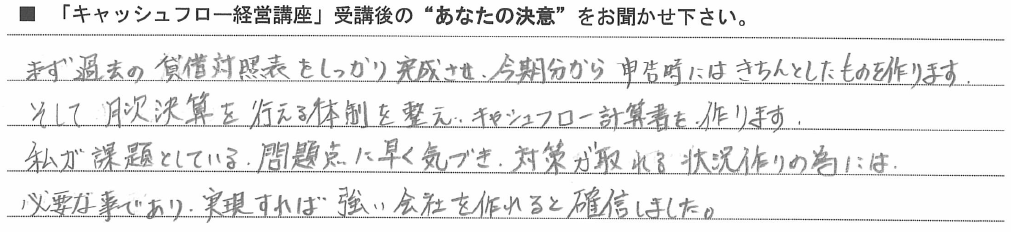 ■ 「キャッシュフロー経営講座」受講後の“あなたの決意”をお聞かせ下さい。
まず過去の貸借対照表をしっかり完成させ、今期分から申告時にはきちんとしたものを作ります。
そして月次決算を行える体制を整え、キャッシュフロー計算書を、作ります。
私が課題としている、問題点に早く気づき、対策が取れる状況作りの為には、
必要な事であり、実現すれば強い会社を作れると確信しました。